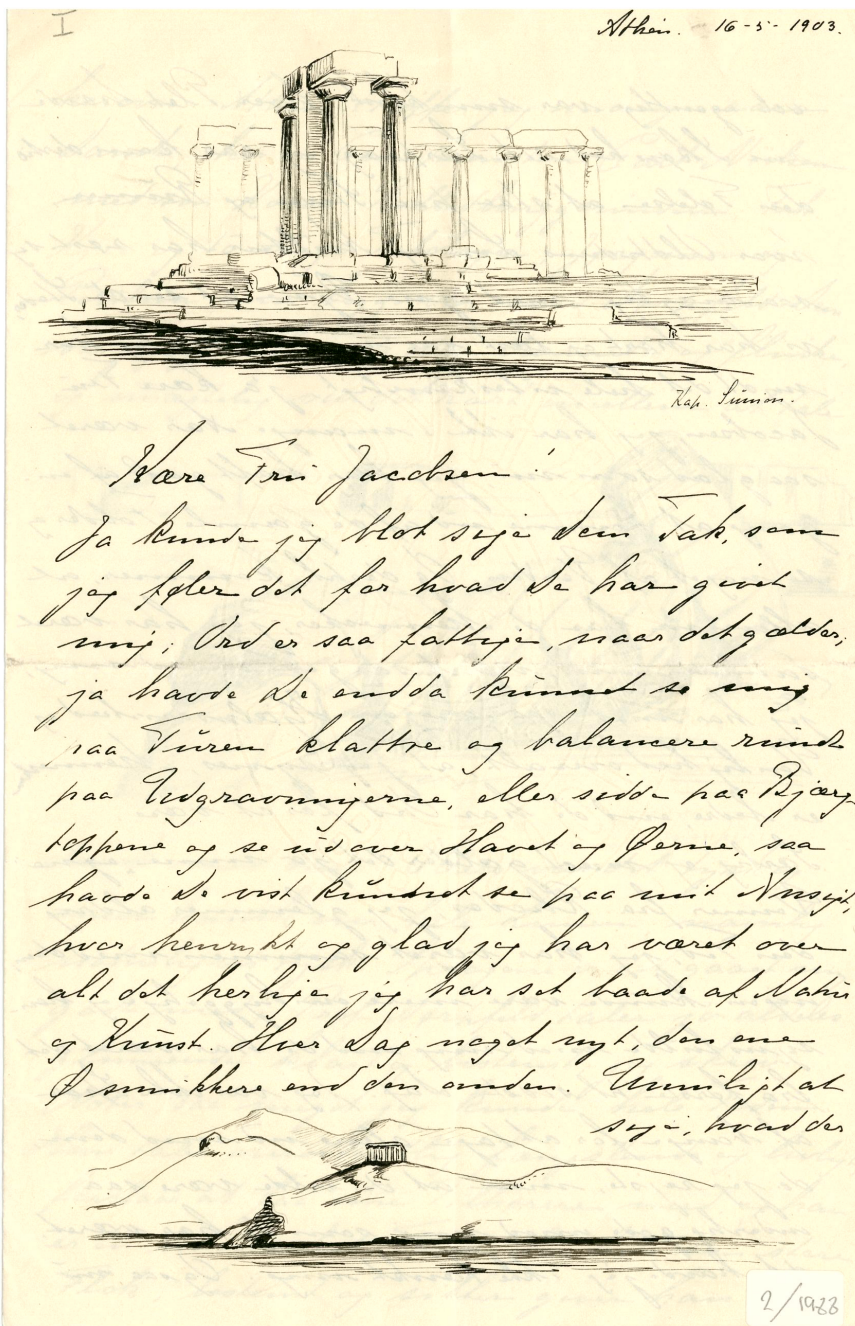 I
Athen. 16-5-1903.
Kap. Sunion.
Kære Fru Jacobsen!
Ja kunde jeg blot sige Dem Tak, som
jeg føler det for hvad De har givet
mig; Ord er saa fattige, naar det gælder;
ja havde De endda kunnet se mig
paa Turen klattre og balancere rundt
paa Udgravningerne, eller sidde paa Bjærg-
toppene og se ud over Havet og Øerne, saa
havde De vist kunnet se paa mit Ansigt,
hvor henrykt og glad jeg har været over
alt det herlige jeg har set baade af Natur
og Kunst. Hver Dag noget nyt, den ene
Ø smukkere end den anden. Umuligt at
sige, hvad der
2/1988